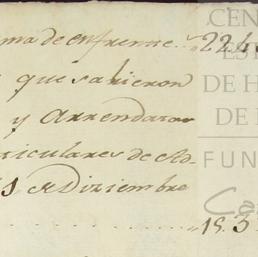 ma de enfrente .. 224
que salieron
y Arrendaron
ticulares de Ad-
1 de Diziembre
15.3
CEN
EST
DE H
DE I
FUN
Ca